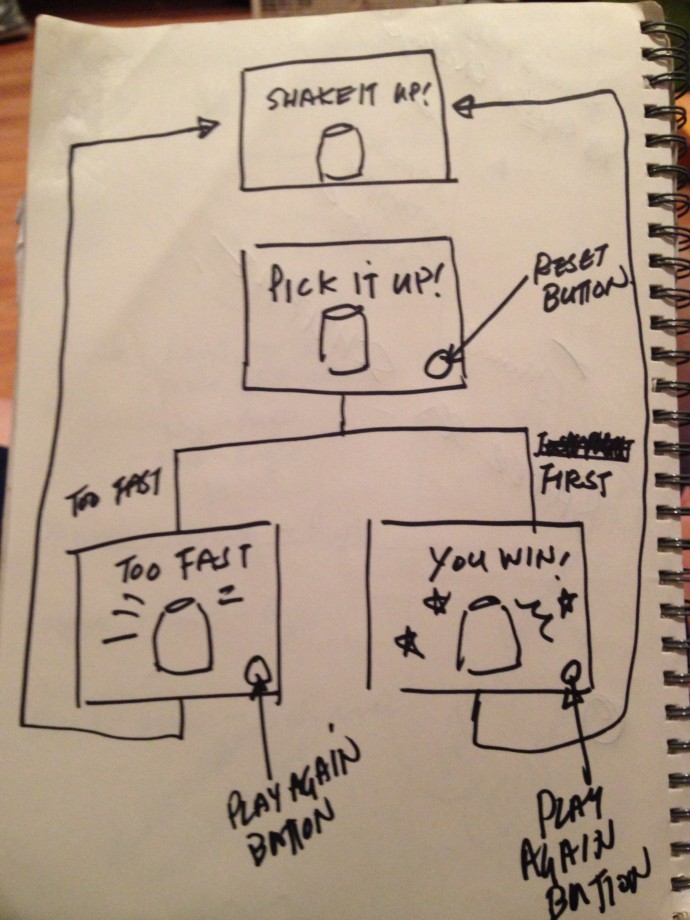 SHAKE IT UP!
PICK IT UP!
RESET
BUTTON
TOO FAST
FIRST
TOO FAST
YOU WIN!
PLAY AGAIN
BUTTON
PLAY
AGAIN
BUTTON